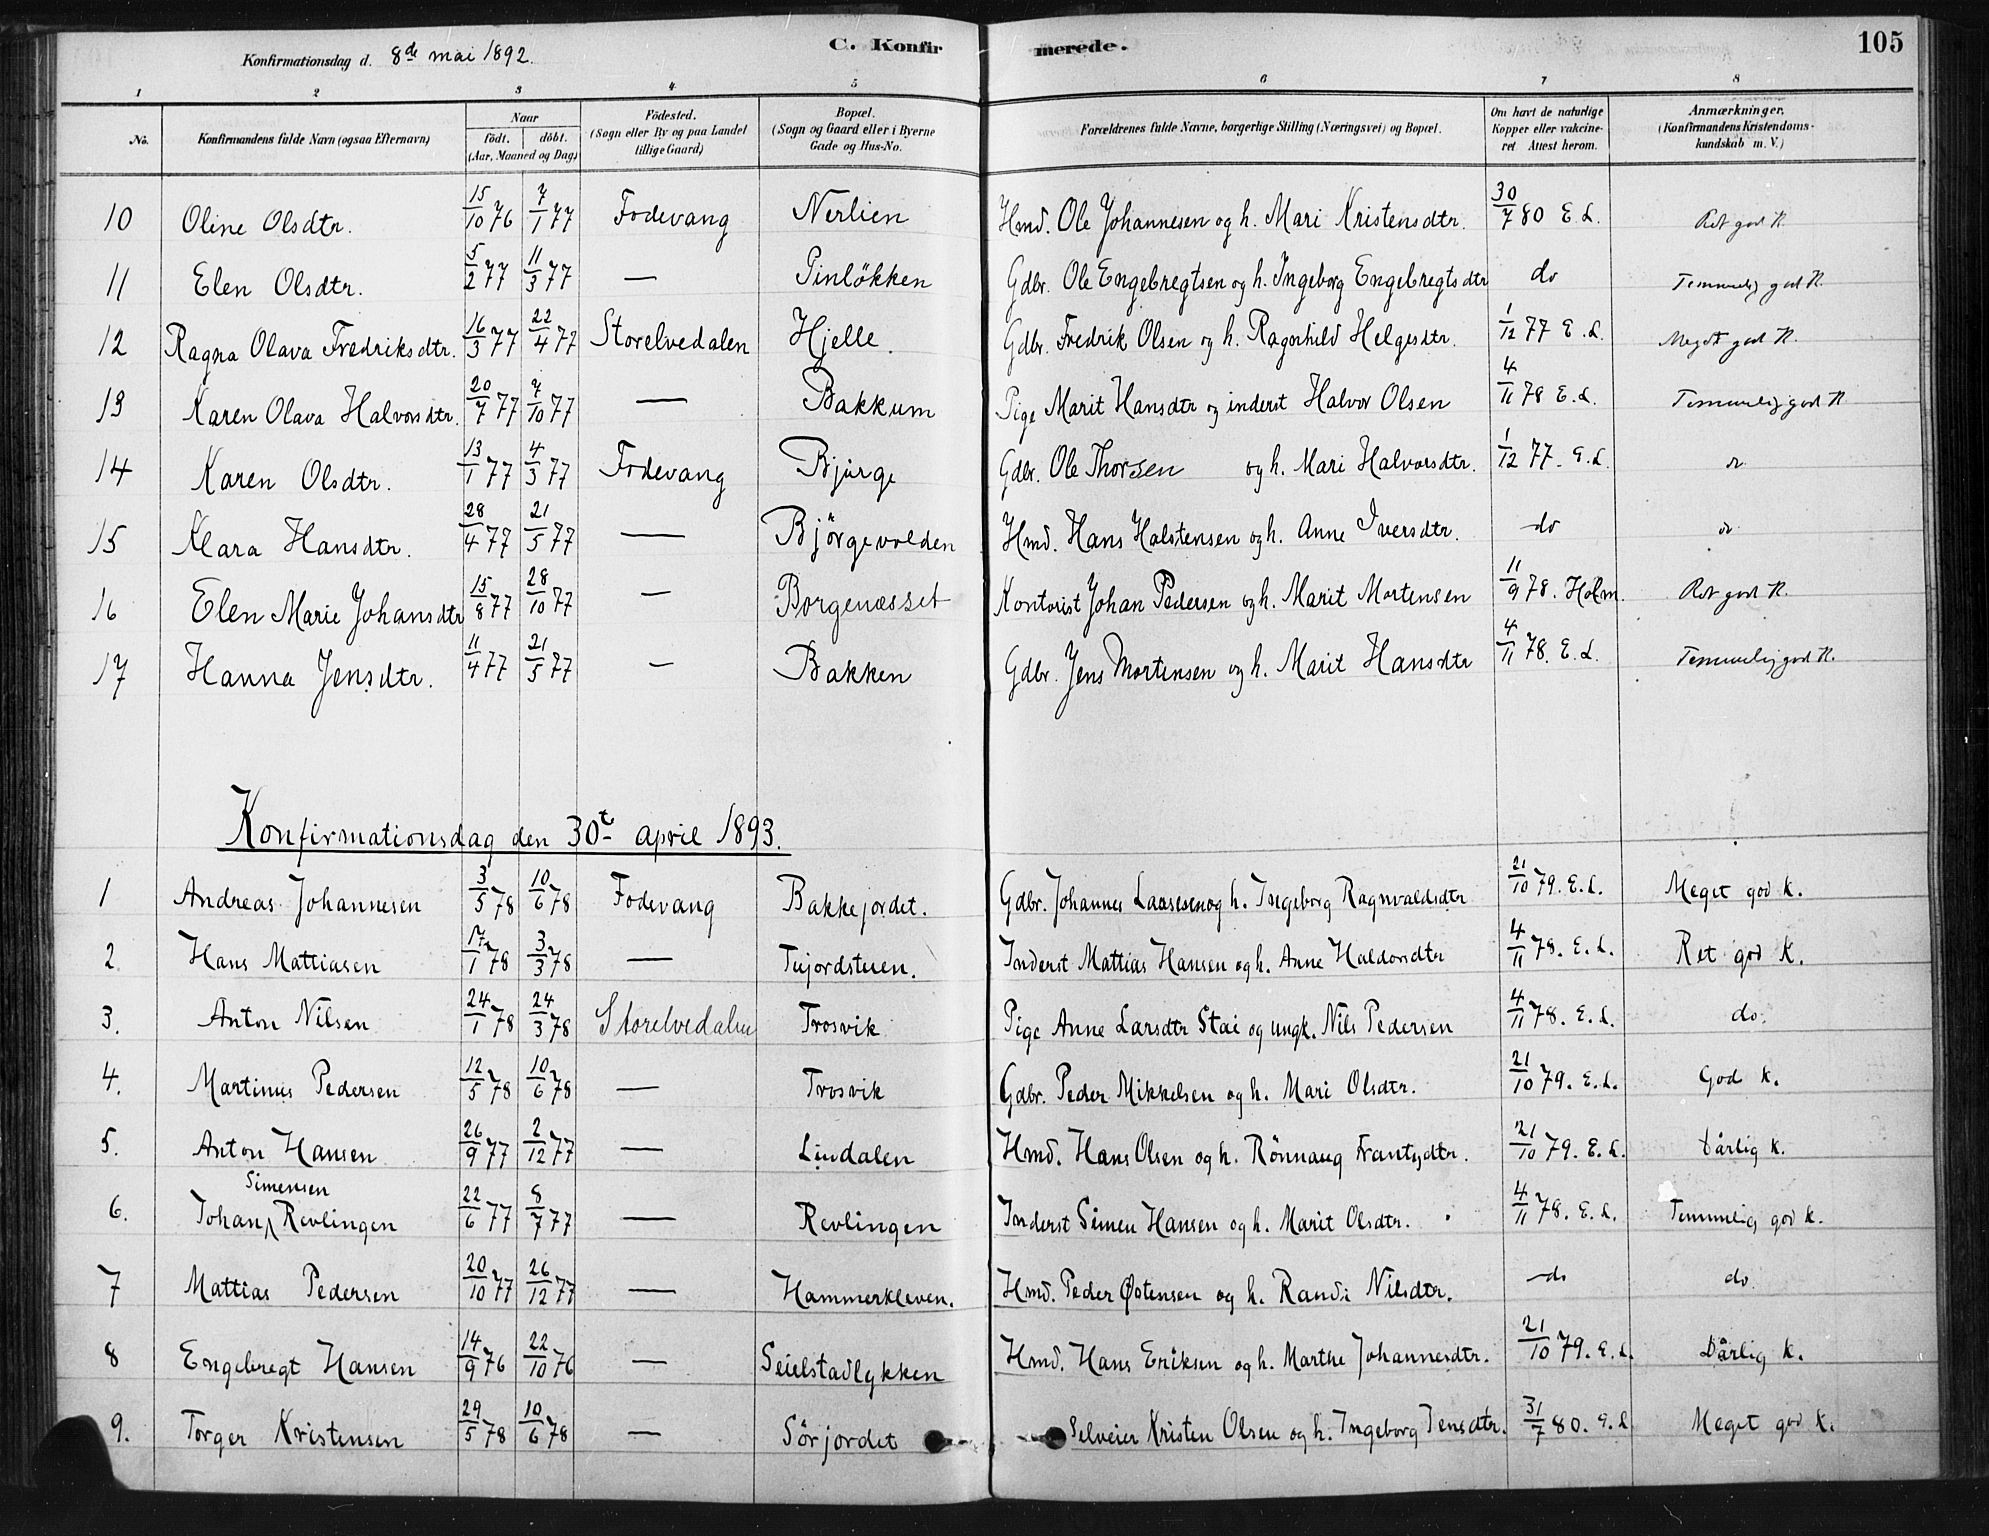 C. Konfirmerede.
105
Konfirmationsdag d. 8de mai 1892.
1 2 3 4 5 6 7 8
No. Konfirmandens fulde Navn (ogsaa Efternavn) Naar födt. döbt. (Aar, Maaned og Dag) Födested. (Sogn eller By og paa Landet tillige Gaard) Bopæl. (Sogn og Gaard eller i Byerne Gade og Hus-No. Forældrenes fulde Navne, borgerlige Stilling (Næringsvei) og Bopæl. Om havt de naturlige Kopper eller vakcineret Attest herom. Anmærkninger. (Konfirmandens Kristendomskundskab m. V.)
10 Oline Olsdtr. 15/10 76 7/1 77 Fodevang Nerlien Hmd. Ole Johannesen og h. Mari Kristensdtr. 30/7 80 E. L. Ret god K.
11 Elen Olsdtr. 5/2 77 11/3 77 — Pinløkken Gdbr. Ole Engebregtsen og h. Ingeborg Engebregtsdtr do Temmelig god K.
12 Ragna Olava Fredriksdtr. 16/3 77 22/4 77 Storelvedalen Hjelle. Gdbr. Fredrik Olsen og h. Ragnhild Helgesdtr. 1/12 77 E. L. Meget god K.
13 Karen Olava Halvorsdtr. 20/7 77 7/10 77 — Bakkum Pige Marit Hansdtr og inderst Halvor Olsen 4/11 78 E. L. Temmelig god K
14 Karen Olsdtr. 13/1 77 4/3 77 Fodevang Bjürge Gdbr. Ole Thorsen og h. Mari Halvorsdtr. 1/12 77. E. L.
15 Klara Hansdtr. 28/4 77 21/5 77 — Bjørgevolden Hmd. Hans Halstensen og h. Anne Iversdtr. do
16 Elen Marie Johansdtr 15/8 77 28/10 77 — Borgenæsset Kontorist Johan Pedersen og h. Marit Mortensen 11/9 78. Holm. Ret god K.
17 Hanna Jensdtr. 11/4 77 21/5 77 — Bakken Gdbr. Jens Mortensen og h. Marit Hansdtr 4/11 78. E. L. Temmelig god K.
Konfirmationsdag den 30t april 1893.
1 Andreas Johannesen 3/5 78 10/6 78 Fodevang Bakkejordet. Gdbr. Johannes Laasesen og h. Ingeborg Ragnvaldsdtr 21/10 79. E. L. Meget god K.
2. Hans Mattiasen 17/1 78 3/3 78 — Tujordstuen. Inderst Mattias Hansen og h. Anne Haldorsdtr 4/11 78. E. L. Ret god K.
3. Anton Nilsen 24/1 78 24/3 78 Storelvedalen Trosvik Pige Anne Larsdtr Stai og ungk. Nils Pedersen 4/11 78. E. L. do.
4. Martinus Pedersen 12/5 78 10/6 78 — Trosvik Gdbr. Peder Mikkelsen og h. Mari Olsdtr. 21/10 79. E. L. God K.
5. Anton Hansen 26/9 77 2/12 77 — Lindalen Hmd. Hans Olsen og h. Rönnaug Frantsdtr. 21/10 79. E. L. Dårlig K.
Simensen
6. Johan Revlingen 22/6 77 8/7 77 — Revlingen Inderst Simen Hansen og h. Marit Olsdtr. 4/11 78. E. L. Temmelig god K.
7 Mattias Pedersen 20/10 77 26/12 77 — Hammerkleven. Hmd. Peder Østensen og h. Randi Nilsdtr. do do
8 Engebregt Hansen 14/9 76 22/10 76 — Seielstadlykken Hmd. Hans Eriksen og h. Marthe Johannesdtr. 21/10 79. E. L. Dårlig K.
9. Torger Kristensen 29/5 78 10/6 78 — Sörjordet Selveier Kristen Olsen og h. Ingeborg Jensdtr. 31/7 80. E. L Meget god K.